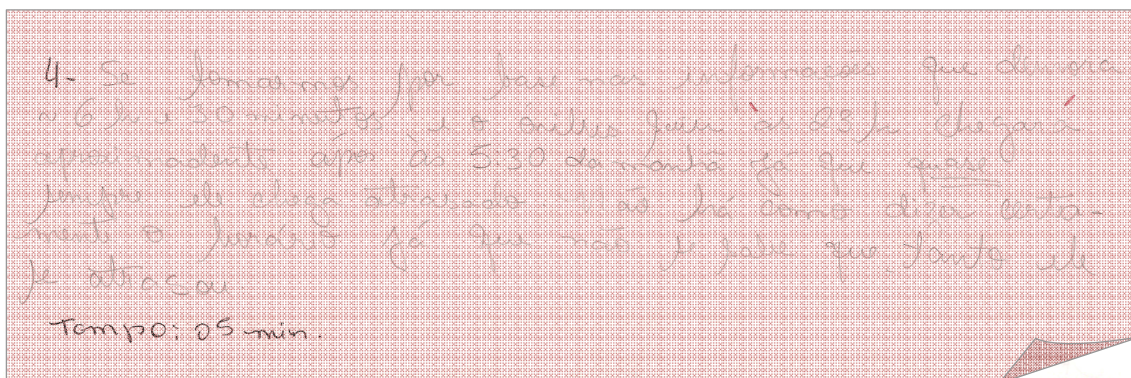 4- Se tomarmos por base nas informações que demora
~ 6 h e 30 minutos e o ônibus às 23 h chegará
após às 5:30 da manhã já que quase
sempre ele chega atrasado. Não há como dizer certa-
mente o horário já que não se sabe que tanto ele
se atrasou.
Tempo: 05 min.